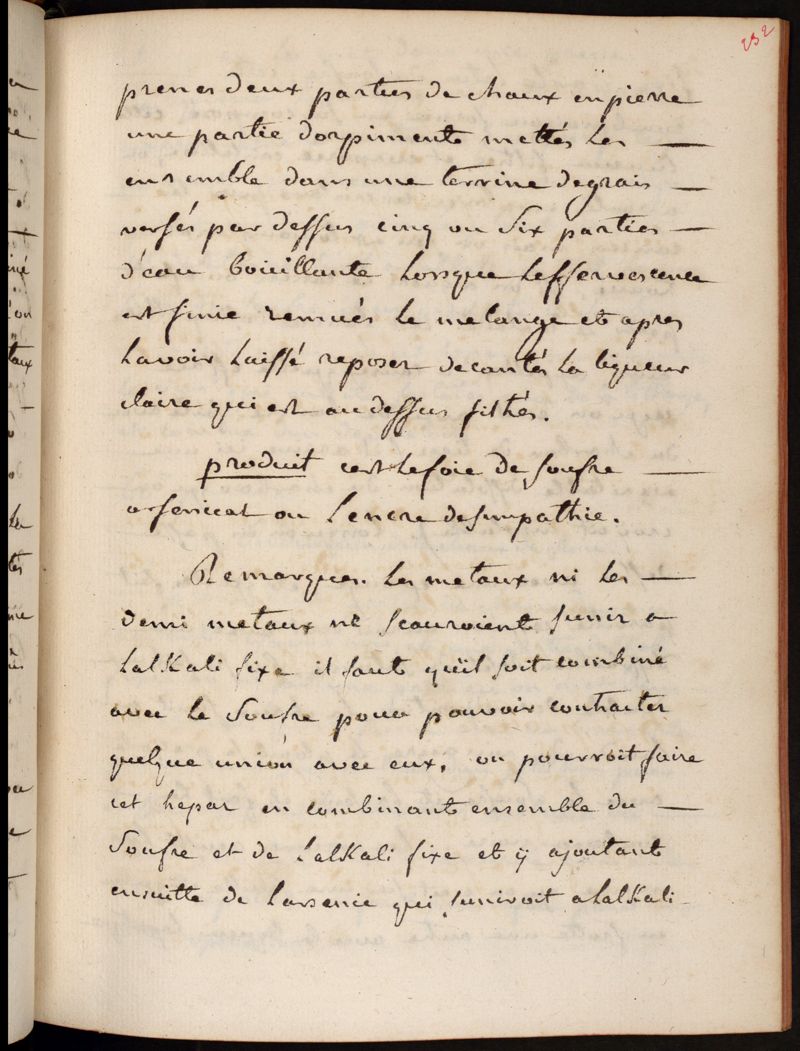 232
prenes deux parties de chaux en pierre
une partie dorpimente mettés les —
ensemble dans une terrine degrais —
versés par dessus cinq ou six parties —
d'eau boüillante lorsque leffervescence
est finie remués le melange et apres
lavoir laissé reposer decantés la liqueur
claire qui est au dessus filtrés.
produit cest le foie de soufre —
arsenical ou lencre desimpathie.
Remarques. les metaux ni les —
demi metaux ne scauroient sunir a
lalkali fixe il faut quil soit combiné
avec le soufre pour pouvoir contracter
quelque union avec eux, on pourroit faire
cet hepar en combinant ensemble du —
soufre et de lalkali fixe et ÿ ajoutant
ensuitte de larsenic qui suniroit alalkali